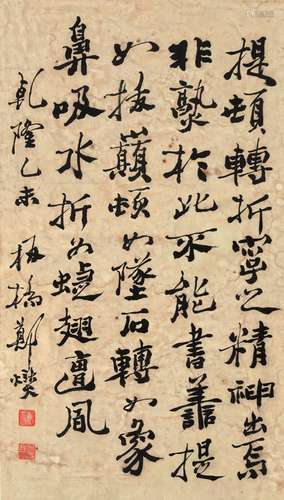 提頓轉折之精神出焉
非熟於此不能書善提
如拔頓如墜石轉如象
鼻吸水折如翅風
乾隆乙未 板橋鄭燮